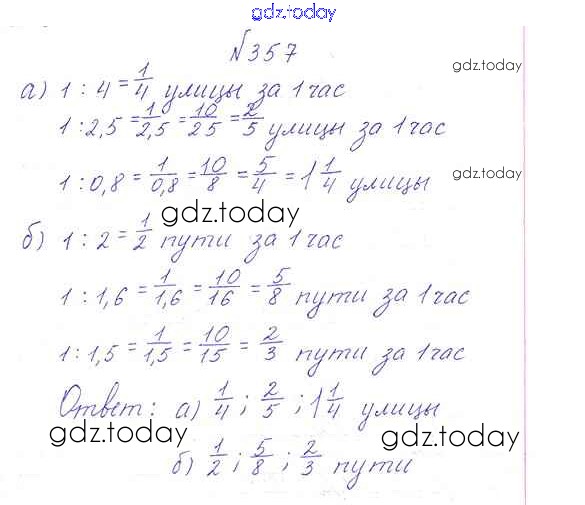 gdz.today
№357
gdz.today
а) 1 : 4 = 1/4 улицы за 1 час
1 : 2,5 = 1/2,5 = 10/25 = 2/5 улицы за 1 час
1 : 0,8 = 1/0,8 = 10/8 = 5/4 = 1 1/4 улицы
gdz.today
gdz.today
б) 1 : 2 = 1/2 пути за 1 час
1 : 1,6 = 1/1,6 = 10/16 = 5/8 пути за 1 час
1 : 1,5 = 1/1,5 = 10/15 = 2/3 пути за 1 час
Ответ: а) 1/4 ; 2/5 ; 1 1/4 улицы
gdz.today
gdz.today
б) 1/2 ; 5/8 ; 2/3 пути